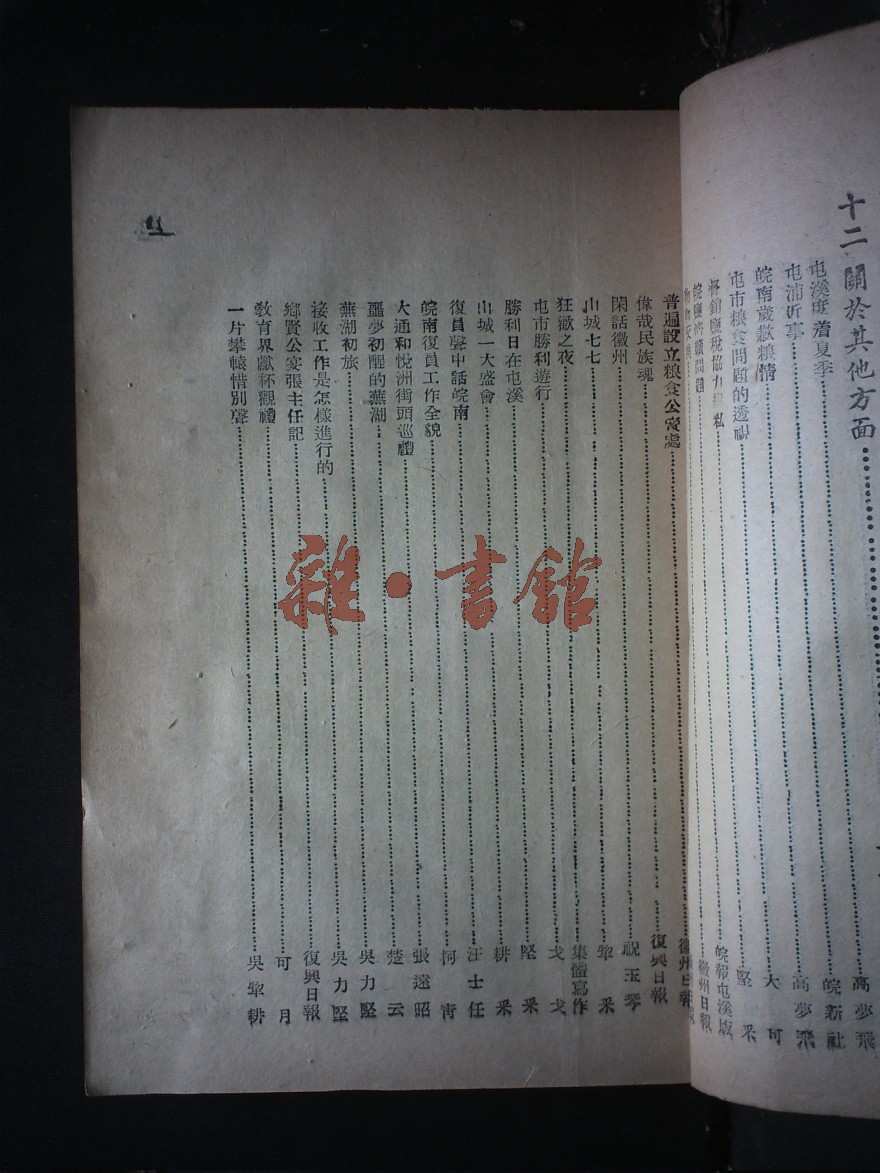 十二 關於其他方面
屯溪度着夏季 高夢飛
屯浦近事 皖新社
皖南歲歉粮情 高夢飛
屯市粮食問題的透視 大可
督銷鹽稅協力 私 堅采
皖鹽 續問題 皖報屯溪版
徽州日報
普遍設立粮食公賣處 徽州日報
偉哉民族魂 復興日報
閑話徽州 祝玉琴
山城七七 犂采
狂歡之夜 集體寫作
屯市勝利遊行 戈戈
勝利日在屯溪 堅采
山城一大盛會 耕采
復員聲中話皖南 汪士任
皖南復員工作全貌 柯靑
大通和悅洲街頭巡禮 張遠昭
噩夢初醒的蕪湖 楚云
蕪湖初旅 吳力堅
接收工作是怎樣進行的 吳力堅
鄉賢公宴張主任記 復興日報
敎育界獻杯觀禮 可月
一片攀轅惜別聲 吳犂耕
雜·書館